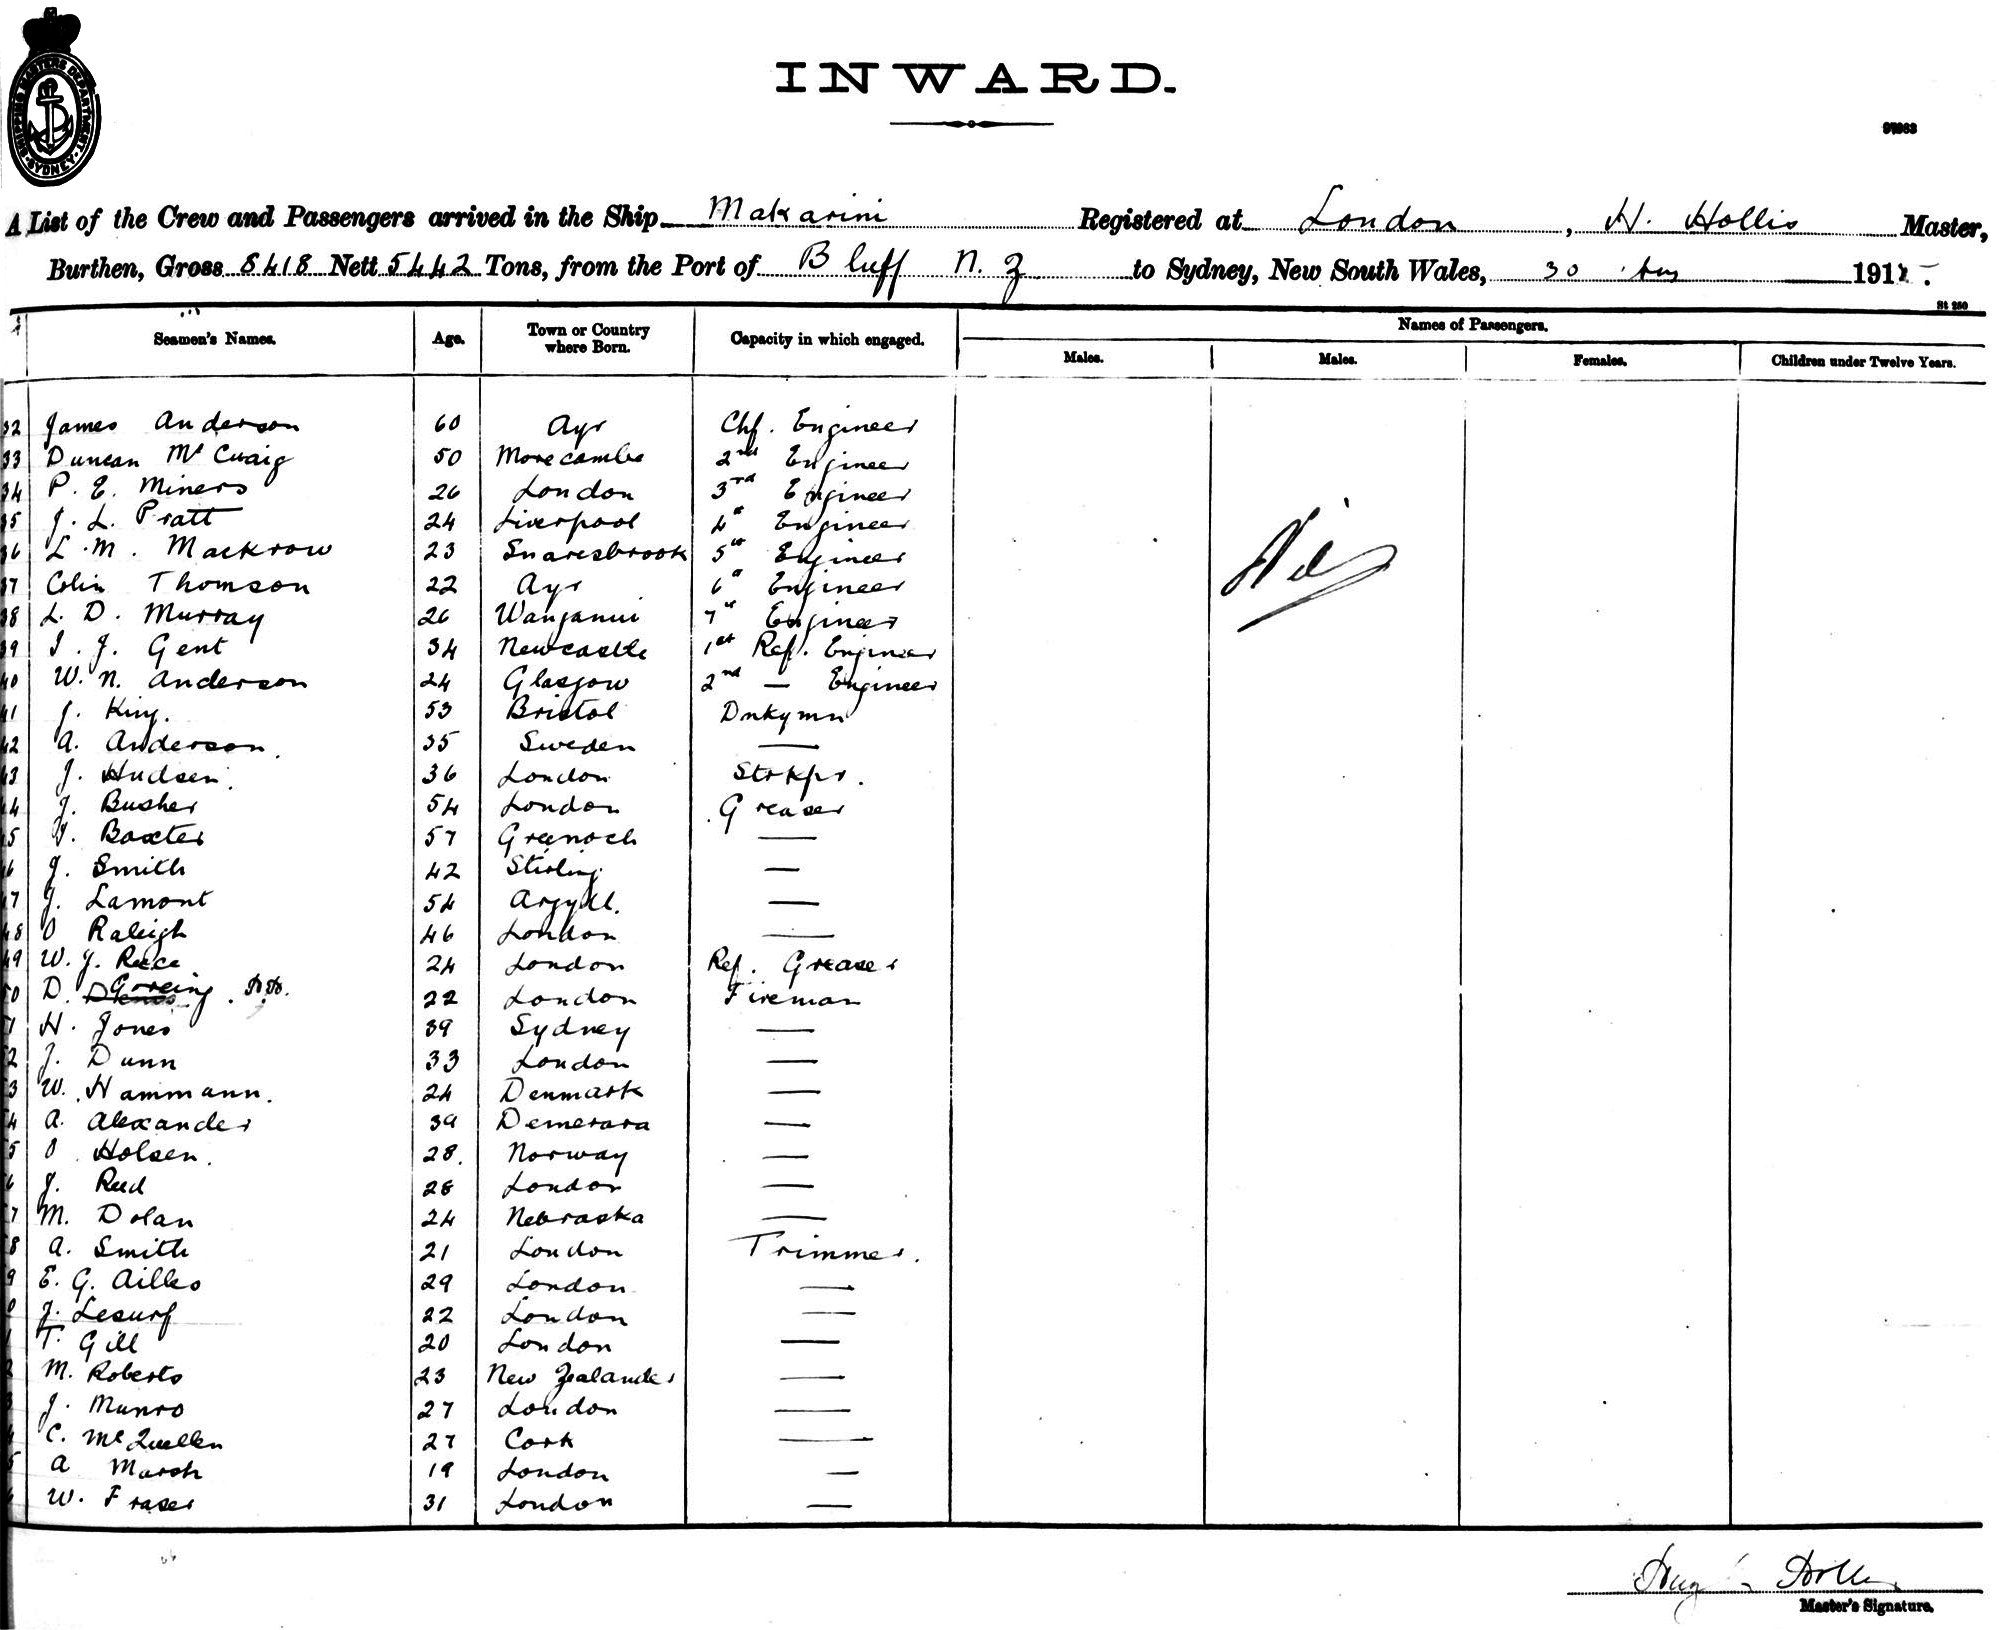 SHIPPING MASTERS DEPARTMENT
SYDNEY
INWARD.
A List of the Crew and Passengers arrived in the Ship Makarini Registered at London, H. Hollis Master,
Burthen, Gross 8418 Nett 5442 Tons, from the Port of Bluff N. Z to Sydney, New South Wales, 30 Aug 191
St 250
Seamen's Names. Age. Town or Country where Born. Capacity in which engaged. Names of Passengers.
Males. Males. Females. Children under Twelve Years.
32 James Anderson 60 Ayr Chf. Engineer
33 Duncan Mc Cuaig 50 Morecambe 2nd Engineer
34 P. E. Miners 26 London 3rd Engineer
35 J. L. Pratt 24 Liverpool 4th Engineer
36 L. M. Mackrow 23 Snaresbrook 5th Engineer
37 Colin Thomson 22 Ayr 6th Engineer
38 L. D. Murray 26 Wanganui 7th Engineer
39 I. J. Gent 34 Newcastle 1st Ref. Engineer
40 W. N. Anderson 24 Glasgow 2nd — Engineer
41 J. King. 53 Bristol Dnkymn
42 A. Anderson. 35 Sweden —
43 J. Hudson. 36 London Strkpr.
44 J. Busher 54 London Greaser
45 J. Baxter 57 Greenock —
46 J. Smith 42 Stirling —
47 J. Lamont 54 Argyll. —
48 O Raleigh 46 London —
49 W. J. Reece 24 London Ref. Greaser
50 D. Goreing. 22 London Fireman
51 H. Jones 39 Sydney —
52 J. Dunn 33 London —
53 W. Hammann. 24 Denmark —
54 A. Alexander 39 Demerara —
55 O Holsen. 28. Norway —
6 J. Reed 28 London —
7 M. Dolan 24 Nebraska —
8 A. Smith 21 London Trimmer.
9 E. G. Ailles 29 London —
0 J. Lesurf 22 London —
1 T. Gill 20 London —
2 M. Roberts 23 New Zealander —
3 J. Munro 27 London —
4 C. McQuellen 27 Cork —
5 A Marsh 19 London —
6 W. Fraser 31 London —
Nil
Hollis
Master's Signature.